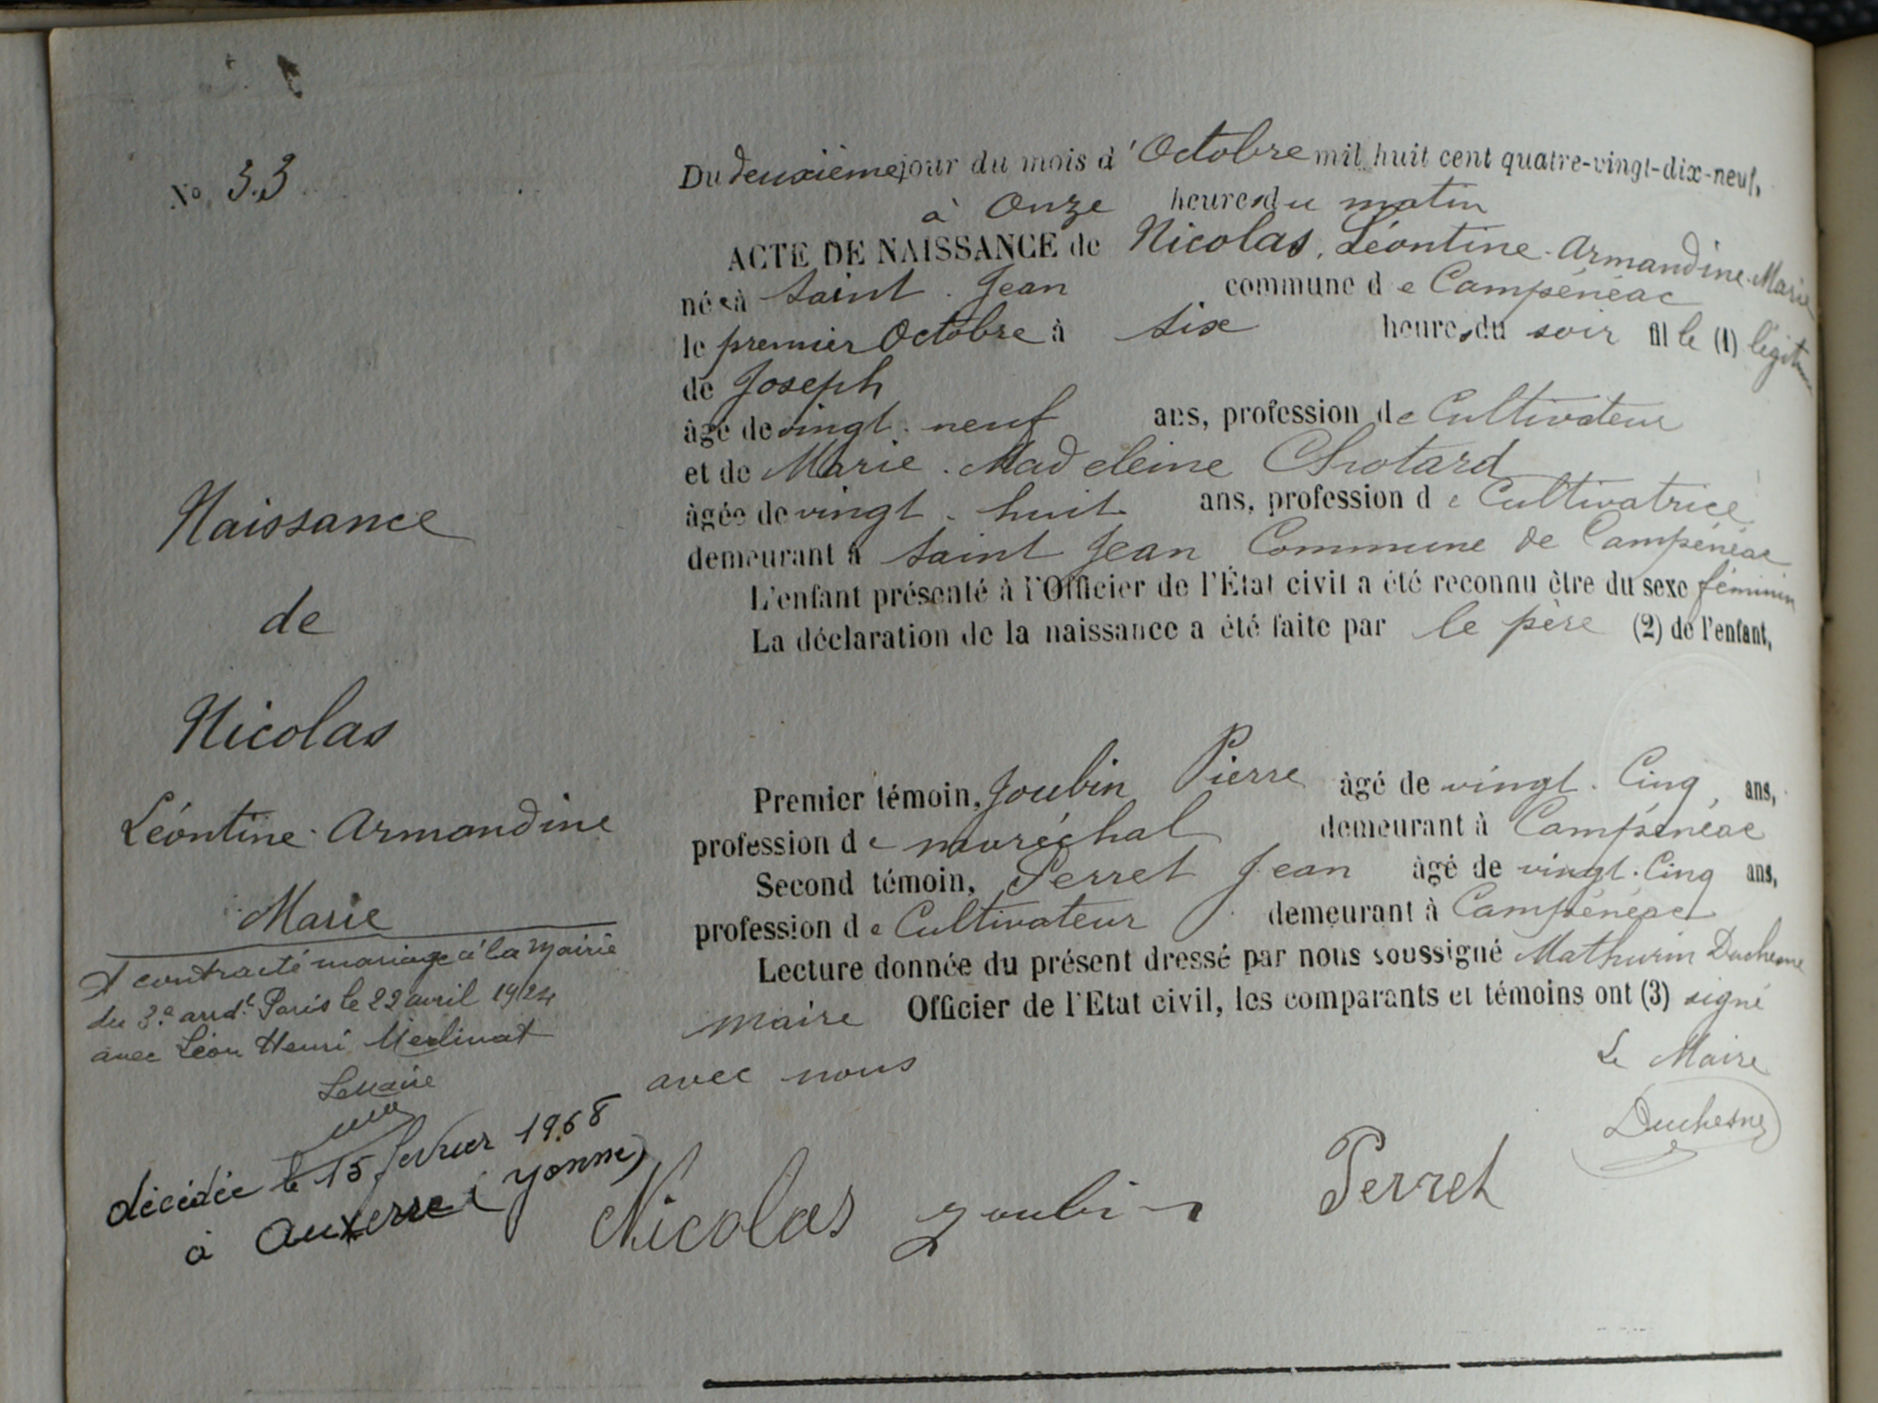 No 33
Du deuxième jour du mois d'Octobre mil huit cent quatre-vingt-dix-neuf,
à Onze heures du matin
ACTE DE NAISSANCE de Nicolas, Léontine-Armandine-Marie
née à Saint-Jean commune de Campénéac
le premier Octobre à six heures du soir fille (1) légitime
de Joseph
âgé de vingt-neuf ans, profession de Cultivateur
et de Marie-Madeleine Chotard
âgée de vingt-huit ans, profession de Cultivatrice
demeurant à Saint Jean Commune de Campénéac
L'enfant présenté à l'Officier de l'État civil a été reconnu être du sexe féminin
La déclaration de la naissance a été faite par le père (2) de l'enfant,
Premier témoin, Joubin Pierre âgé de vingt-Cinq, ans,
profession de maréchal demeurant à Campénéac
Second témoin, Perret Jean âgé de vingt-Cinq ans,
profession de Cultivateur demeurant à Campénéac
Lecture donnée du présent dressé par nous soussigné Mathurin Duchesne
maire Officier de l'Etat civil, les comparants et témoins ont (3) signé
avec nous
Le Maire
Duchesne
Nicolas Joubin Perret
Naissance
de
Nicolas
Léontine-Armandine
Marie
A contracté mariage à la Mairie
du 3e arrdt Paris le 22 avril 1924
avec Léon Henri Merlinat
Le Maire
décédée le 15 février 1968
à Auxerre (Yonne)